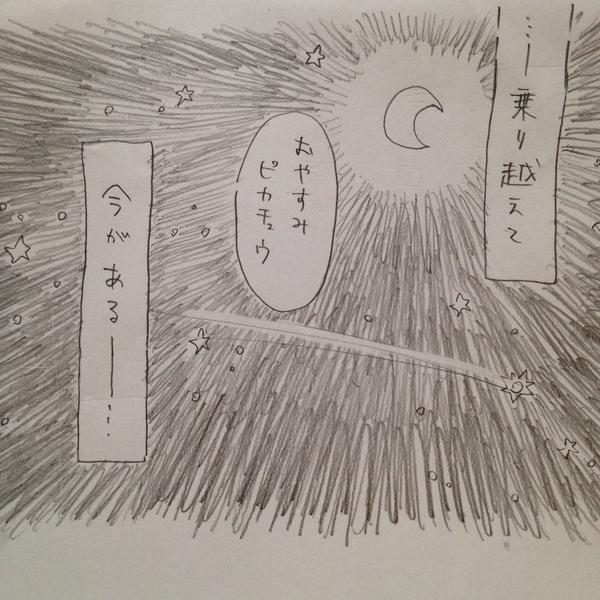 …―乗り越えて
おやすみ
ピカチュウ
今がある――…